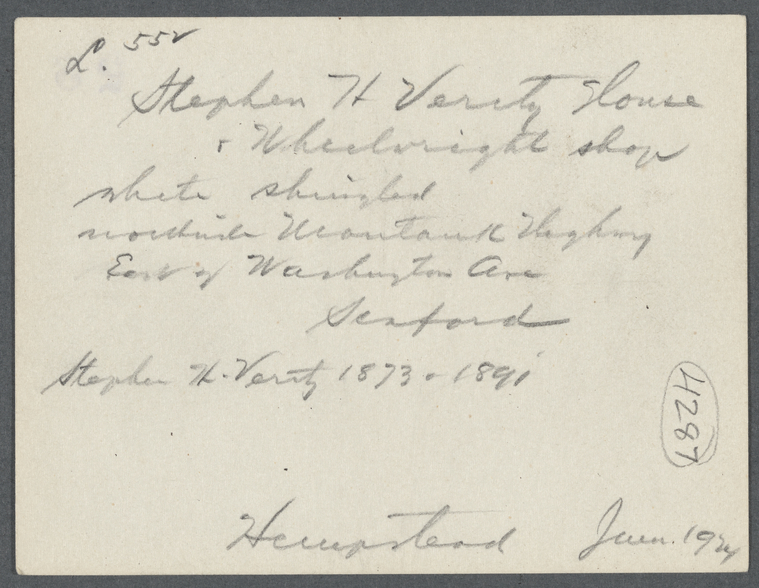 L. 552
Stephen H Verity House
+ Wheelwright shop
white shingled
northside Montauk Highway
East of Washington Ave
Seaford
Stephen H. Verity 1873 + 1891
4287
Hempstead June. 1924